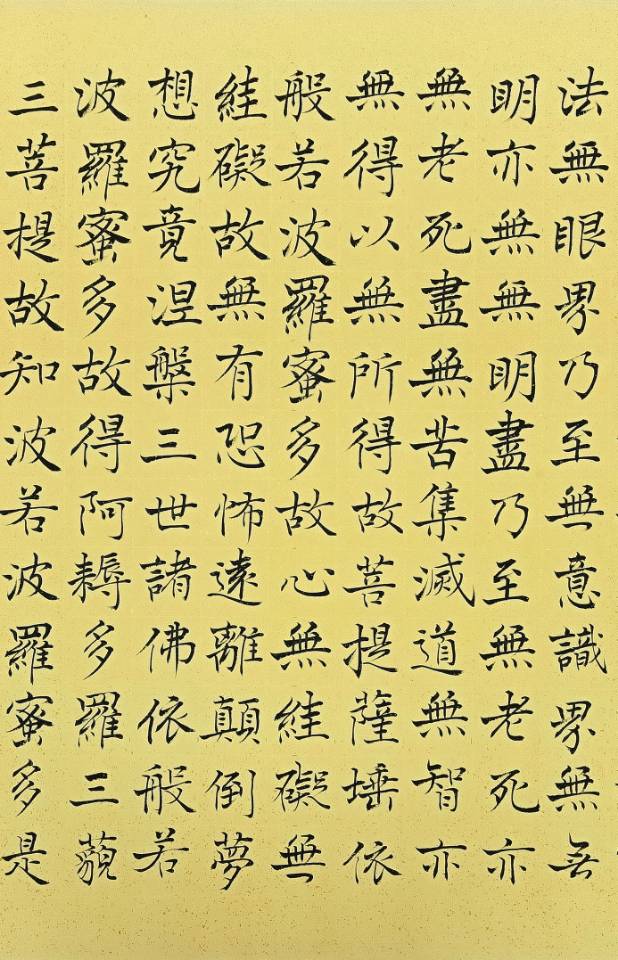 法無眼界乃至無意識界無无
明亦無無明盡乃至無老死亦
無老死盡無苦集滅道無智亦
無得以無所得故菩提薩埵依
般若波羅蜜多故心無絓礙無
絓礙故無有恐怖遠離顛倒夢
想究竟涅槃三世諸佛依般若
波羅蜜多故得阿耨多羅三藐
三菩提故知波若波羅蜜多是